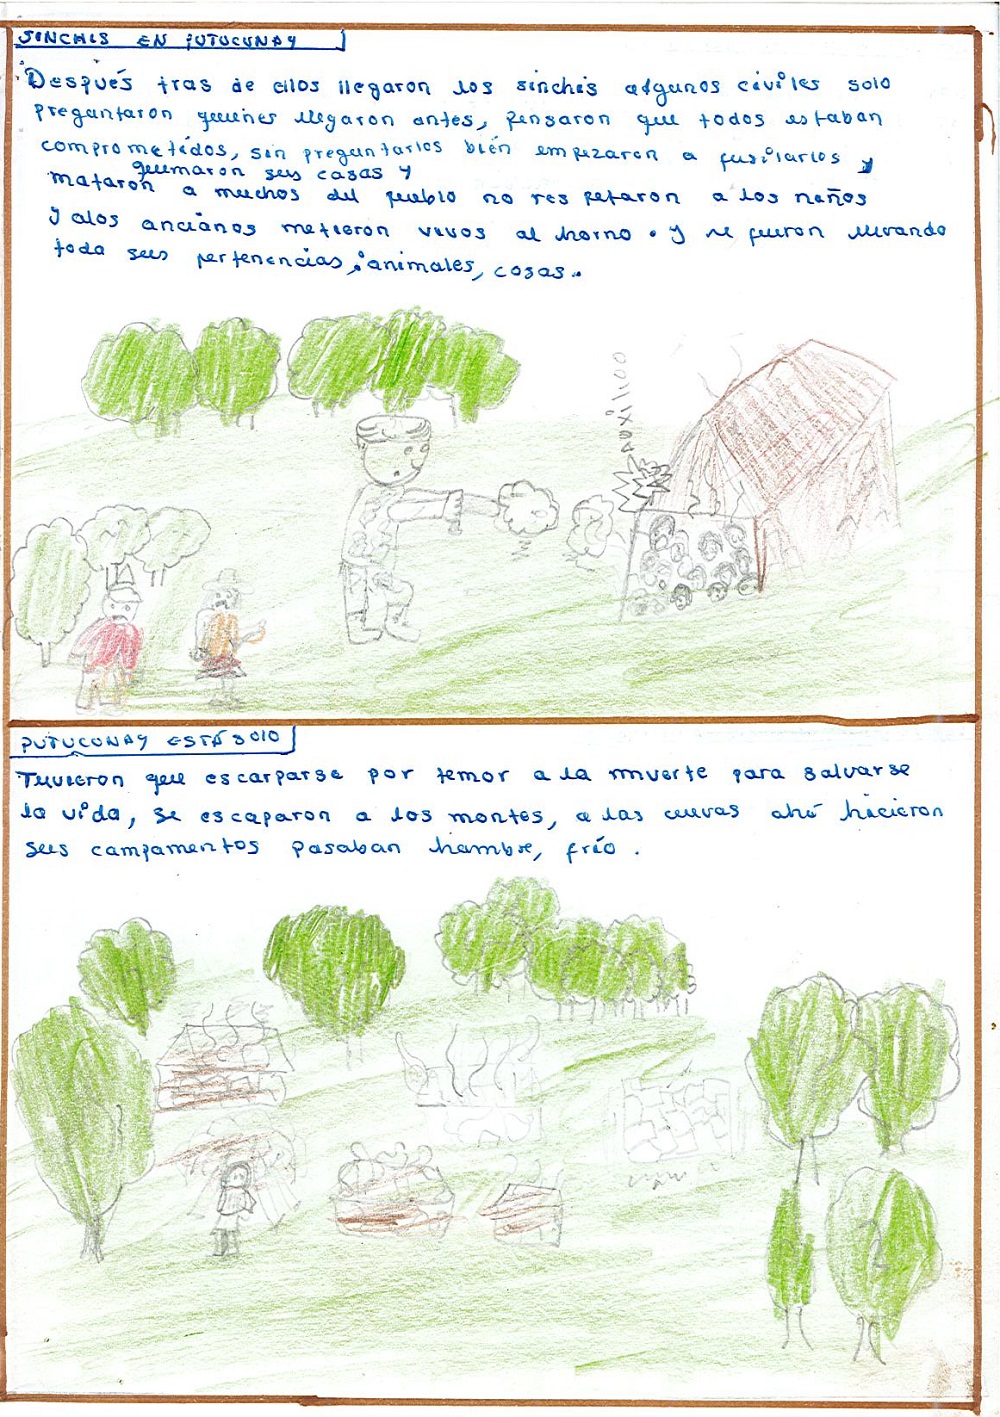 SINCHIS EN PUTUCUNAY
Después tras de ellos llegaron los sinchis algunos civiles solo
preguntaron quienes llegaron antes, pensaron que todos estaban
comprometidos, sin preguntarlos bién empezaron a fusilarlos y
quemaron sus casas y
mataron a muchos del pueblo no respetaron a los neños
y alos ancianos metieron vivos al horno. Y se fueron llevando
toda sus pertenencias, animales, cosas.
AUXILIOO
PUTUCUNAY ESTÁ SOLO
Tuvieron que escarparse por temor a la muerte para salvarse
la vida, se escaparon a los montes, a las cuevas ahí hicieron
sus campamentos pasaban hambre, frío.